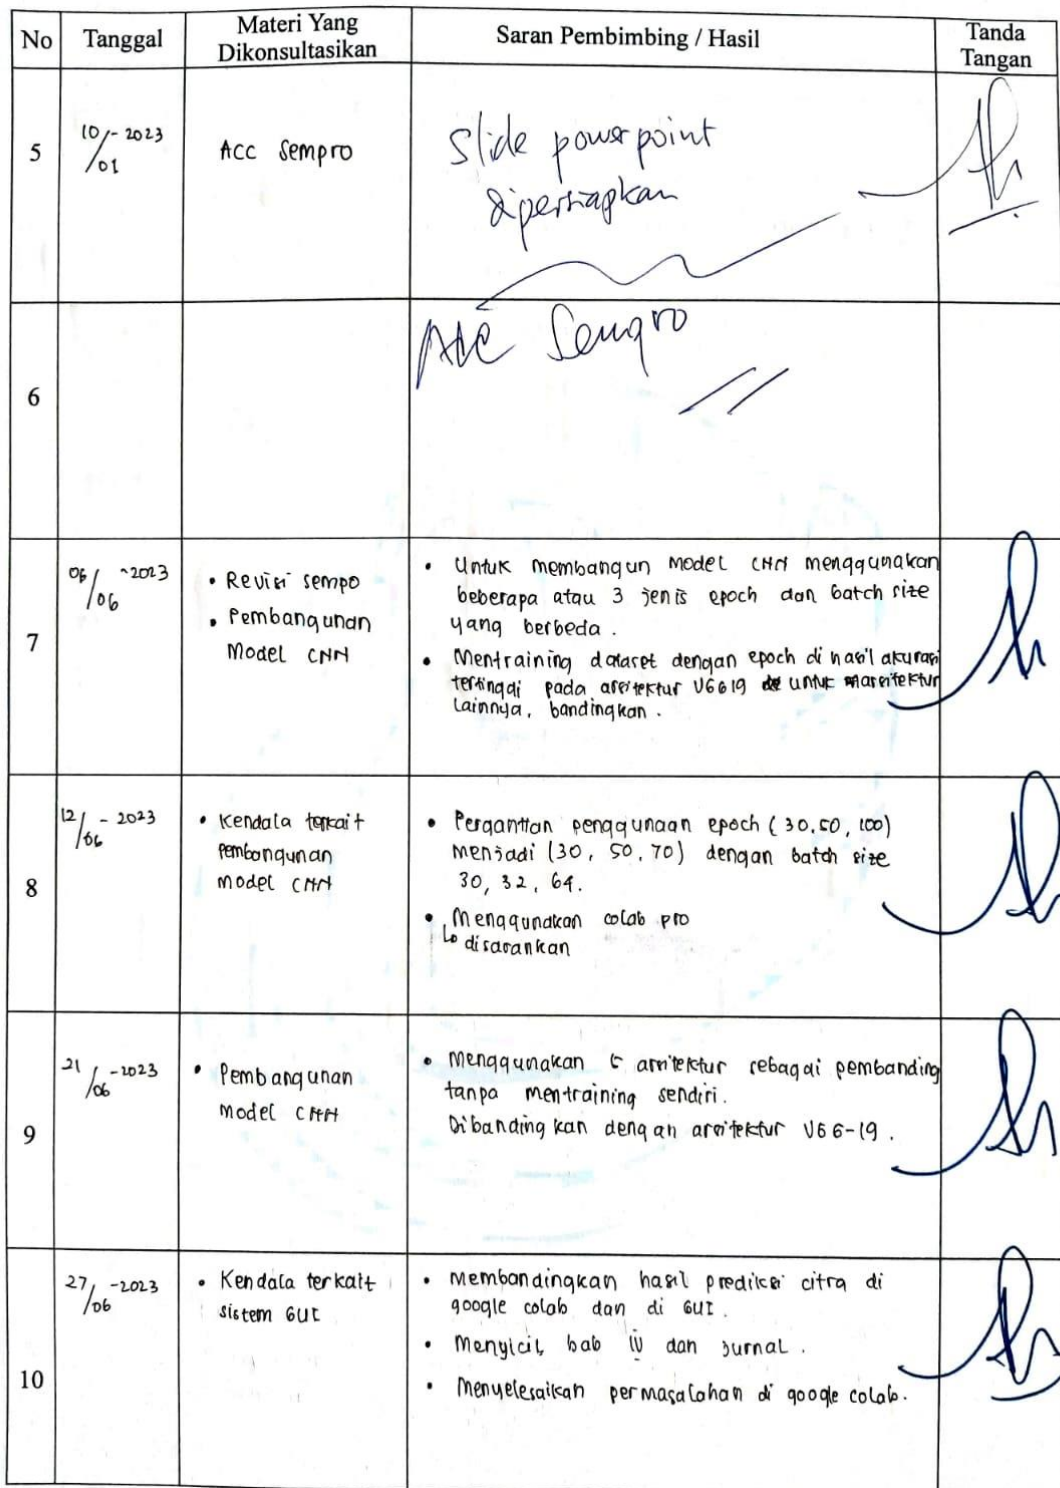 No Tanggal Materi Yang Dikonsultasikan Saran Pembimbing / Hasil Tanda Tangan
5
10/01-2023
ACC Sempro
Slide powerpoint
dipersiapkan
6
ACC Sempro
7
06/06-2023
• Revisi sempo
• Pembangunan
Model CNN
• Untuk membangun Model CNN menggunakan
beberapa atau 3 jenis epoch dan batch size
yang berbeda.
• Mentraining dataset dengan epoch di hasil akurasi
tertinggi pada arsitektur VGG19 untuk arsitektur
lainnya, bandingkan.
8
12/06-2023
• Kendala terkait
pembangunan
model CNN
• Pergantian penggunaan epoch (30,50,100)
menjadi (30, 50, 70) dengan batch size
30, 32, 64.
• Menggunakan colab pro
↳ disarankan
9
21/06-2023
• Pembangunan
model CNN
• Menggunakan arsitektur sebagai pembanding
tanpa mentraining sendiri.
Dibandingkan dengan arsitektur VGG-19.
10
27/06-2023
• Kendala terkait
sistem GUI
• Membandingkan hasil prediksi citra di
google colab dan di GUI.
• Menyicil bab IV dan jurnal.
• Menyelesaikan permasalahan di google colab.